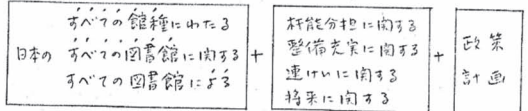 すべての館種にわたる
日本の すべての図書館に関する
すべての図書館による
+
機能分担に関する
整備充実に関する
連けいに関する
将来に関する
+
政策
計画